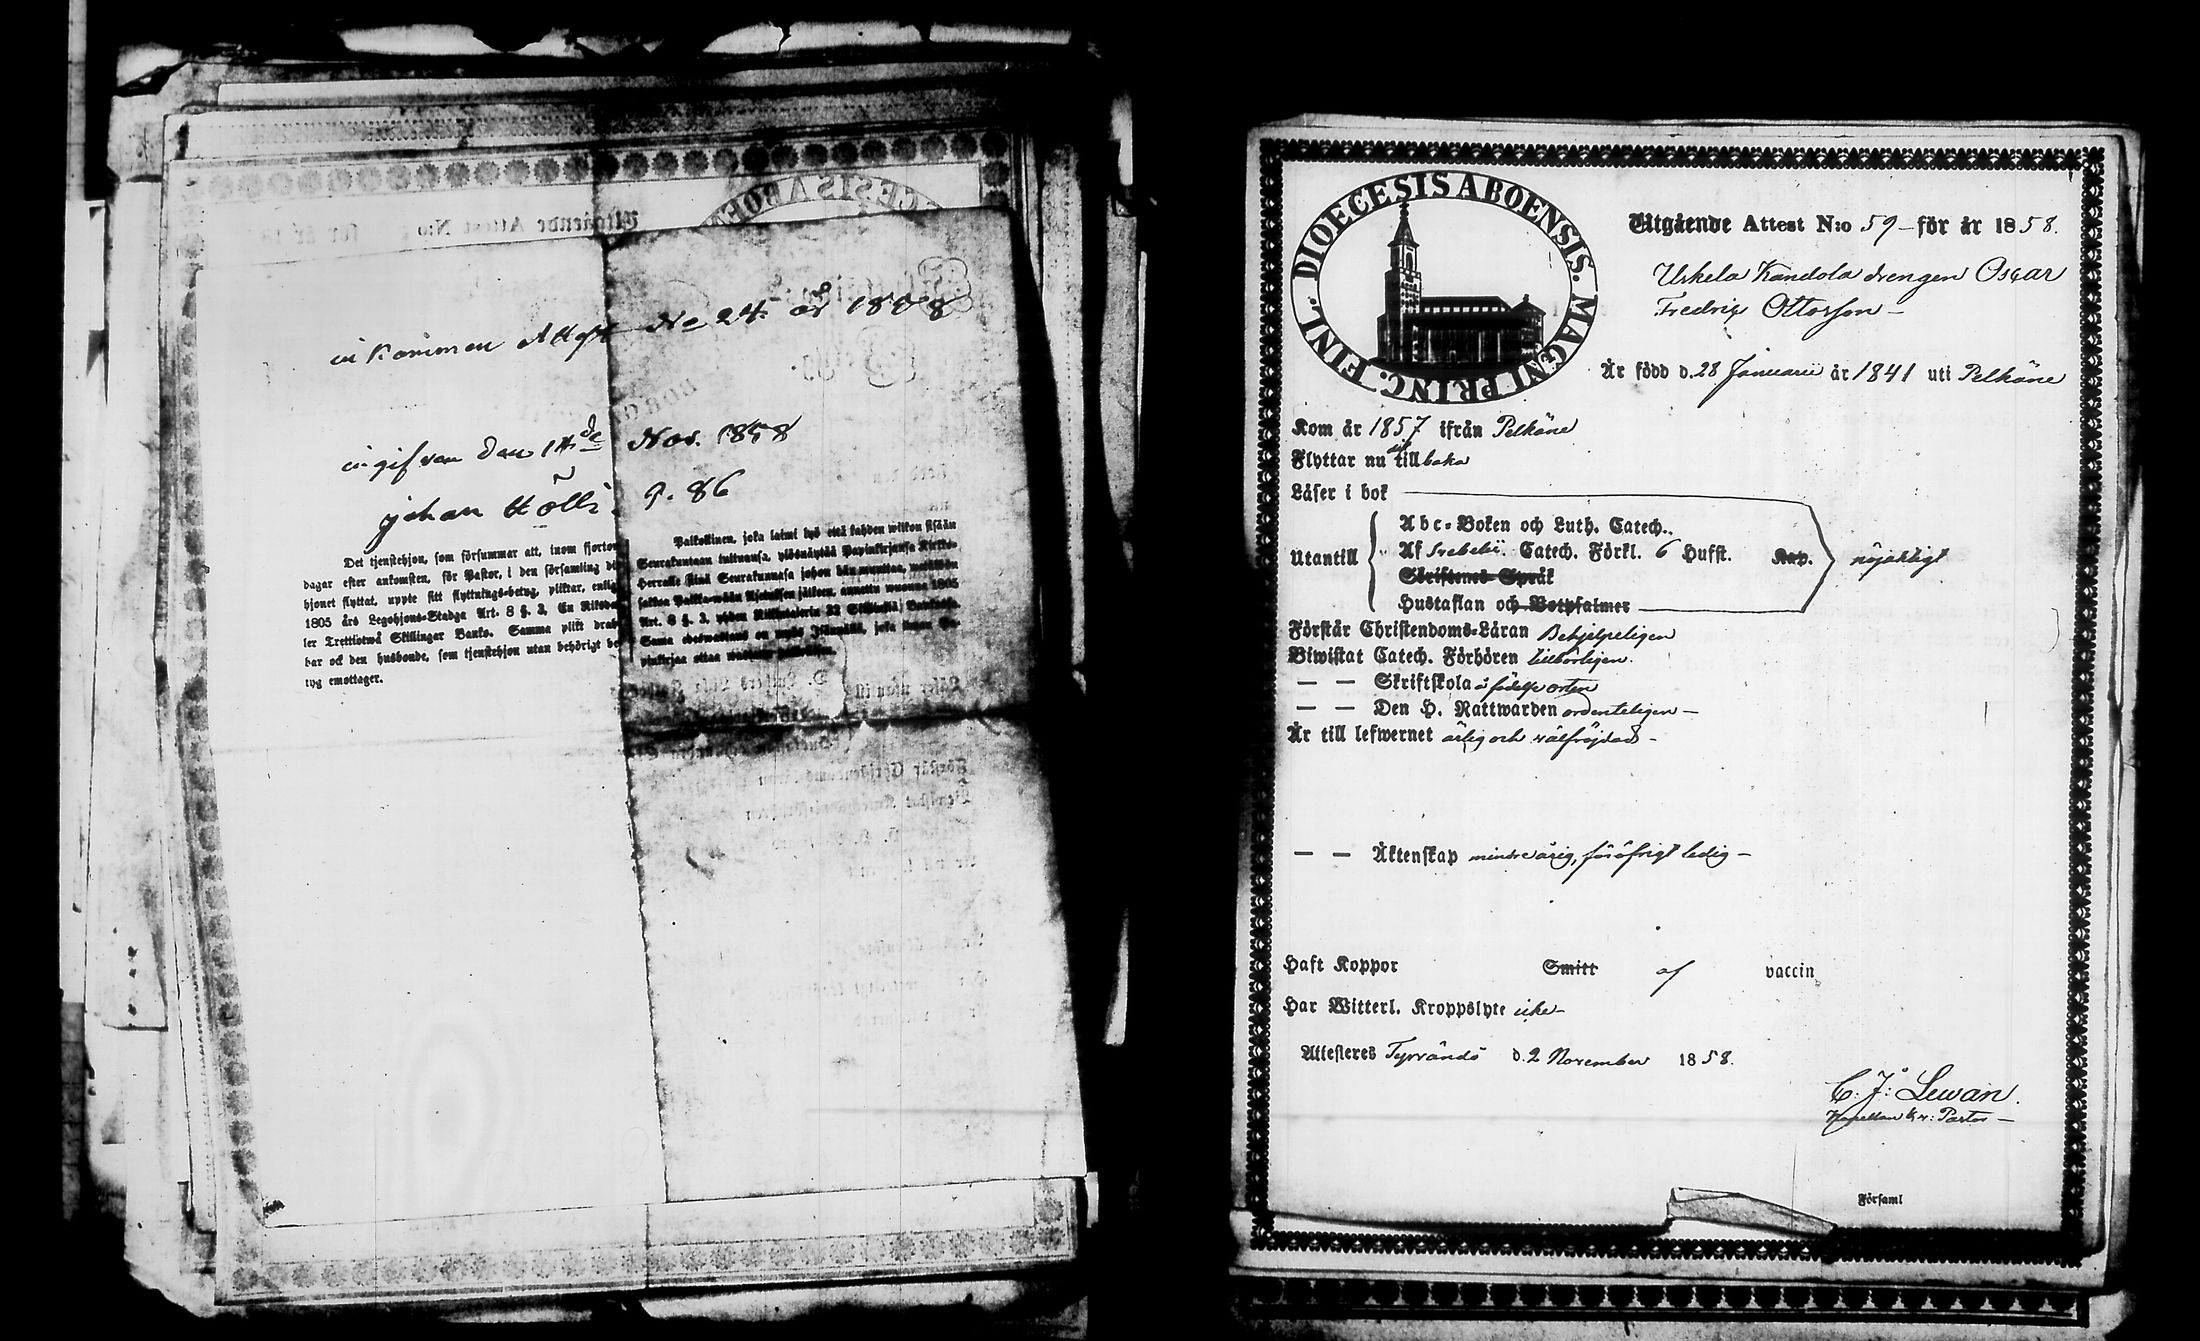 inkommen Attest No 24. år 1858
ingifven den 14de Nov. 1858
johan Hölli. p. 86
Det tjenstehjon, som försummar att, inom fjorton
dagar efter ankomsten, för Pastor, i den församling
hjonet flyttat, uppte sitt flyttnings-betyg, pliktar, enligt
1805 års Legohjons-Stadga Art. 8 §. 3. En Riksda-
ler Trettiotwå Skillingar Banko. Samma plikt
bar ock den husbonde, som tjenstehjon utan behörigt be-
tyg emottager.
Palkollinen, joka laimi lyö että kahden wiikon sisään
Seurakuntaan tultuansa, ylösnäyttää Papinkirjansa Kirkko-
Herralle siinä Seurakunnasa johon hän muuttaa,
sakkoa Palkka-wäen Asetuksen jälkeen, annettu wuonna 1805
Art. 8 §. 3, yhden Riikintalerin 32 Skillinkiä Bankosa.
Sama edeswastaus on myös Isännällä, joka ilman Pa-
pinkirjaa ottaa palkollisen.
DIOECESIS ABOENSIS. MAGNI PRINC. FINL.
Utgående Attest N:o 59 – för år 1858.
Uskela Kandola drengen Oscar
Fredrig Ottosson –
Är född d. 28 Januarii år 1841 uti Pelkäne
Kom år 1857 ifrån Pelkäne
Flyttar nu dit tillbaka
Läser i bok
Abc-Boken och Luth. Catech.
Utantill Af Svebelii Catech. Förkl. 6 Hufst. Kap. nöjaktigt
Skriftenes Språk
Hustaflan och Botpsalmer
Förstår Christendoms-Läran Behjelpeligen
Biwistat Catech. Förhören tillbörligen.
— — Skriftskola å födelse orten
— — Den H. Nattwarden ordenteligen –
Är till lefwernet ärlig och välfrejdad –
— — Äktenskap minderårig, för öfrigt ledig –
Haft Koppor Smitt af vaccin
Har Witterl. Kroppslyte icke –
Attesteres Tyrvändö d. 2 November 1858.
C. J: Lewan.
Kapellan & v: Pastor –
Församl